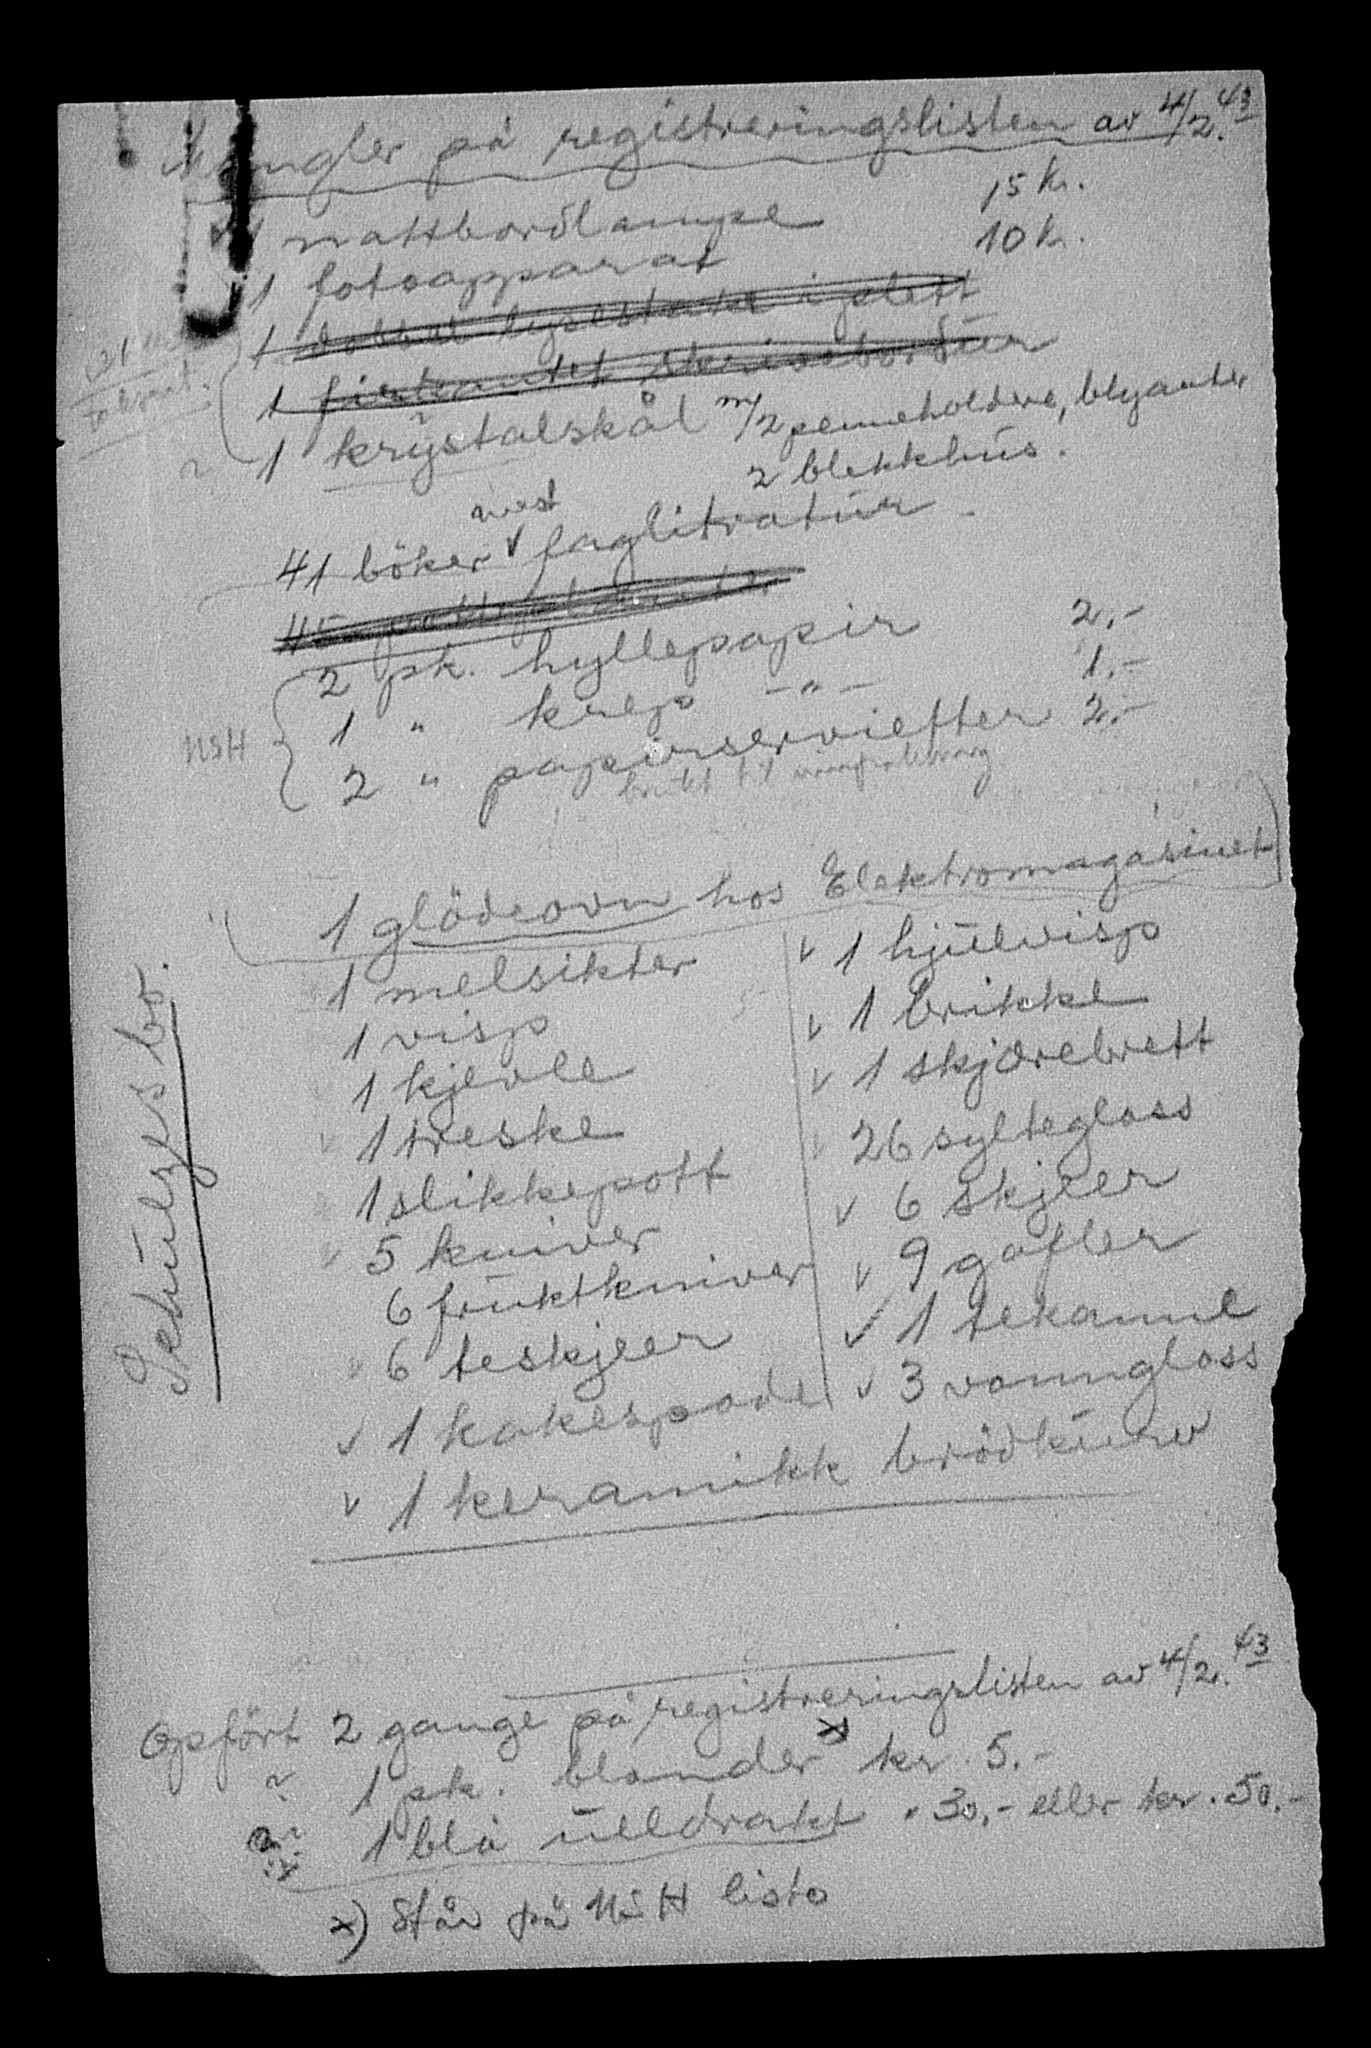 Mangler på registreringslisten av 4/2.43
1 nattbordlampe 15 kr.
1 fotoapparat 10 kr.
1 dobbel lysestake i plett
1 firkantet skrivebordur
1 krystalskål m/2 penneholdere, blyanter
2 blekkhus.
mest
41 böker faglitratur.
45
2 pk. hyllepapir 2.-
1 " krep -"- 1.-
NSH
2 " papirservietter 2.-
brukt til
1 glödeovn hos Elektromagasinet
1 melsikter
1 visp
1 kjevle
1 treske
1 slikkepott
5 kniver
6 fruktkniver
6 teskjeer
v 1 kakespade
v 1 keramikk brödkurv
v 1 hjulvisp
v 1 brikke
v 1 skjærebrett
v 26 sylteglass
v 6 skjeer
v 9 gafler
v 1 tekanne
v 3 vannglass
bo.
Opfört 2 gange på registreringslisten av 4/2.43
1 pk. blonder x) kr. 5.-
1 blå ulldrakt " 30,- eller kr. 50.-
x) Står på NSH liste